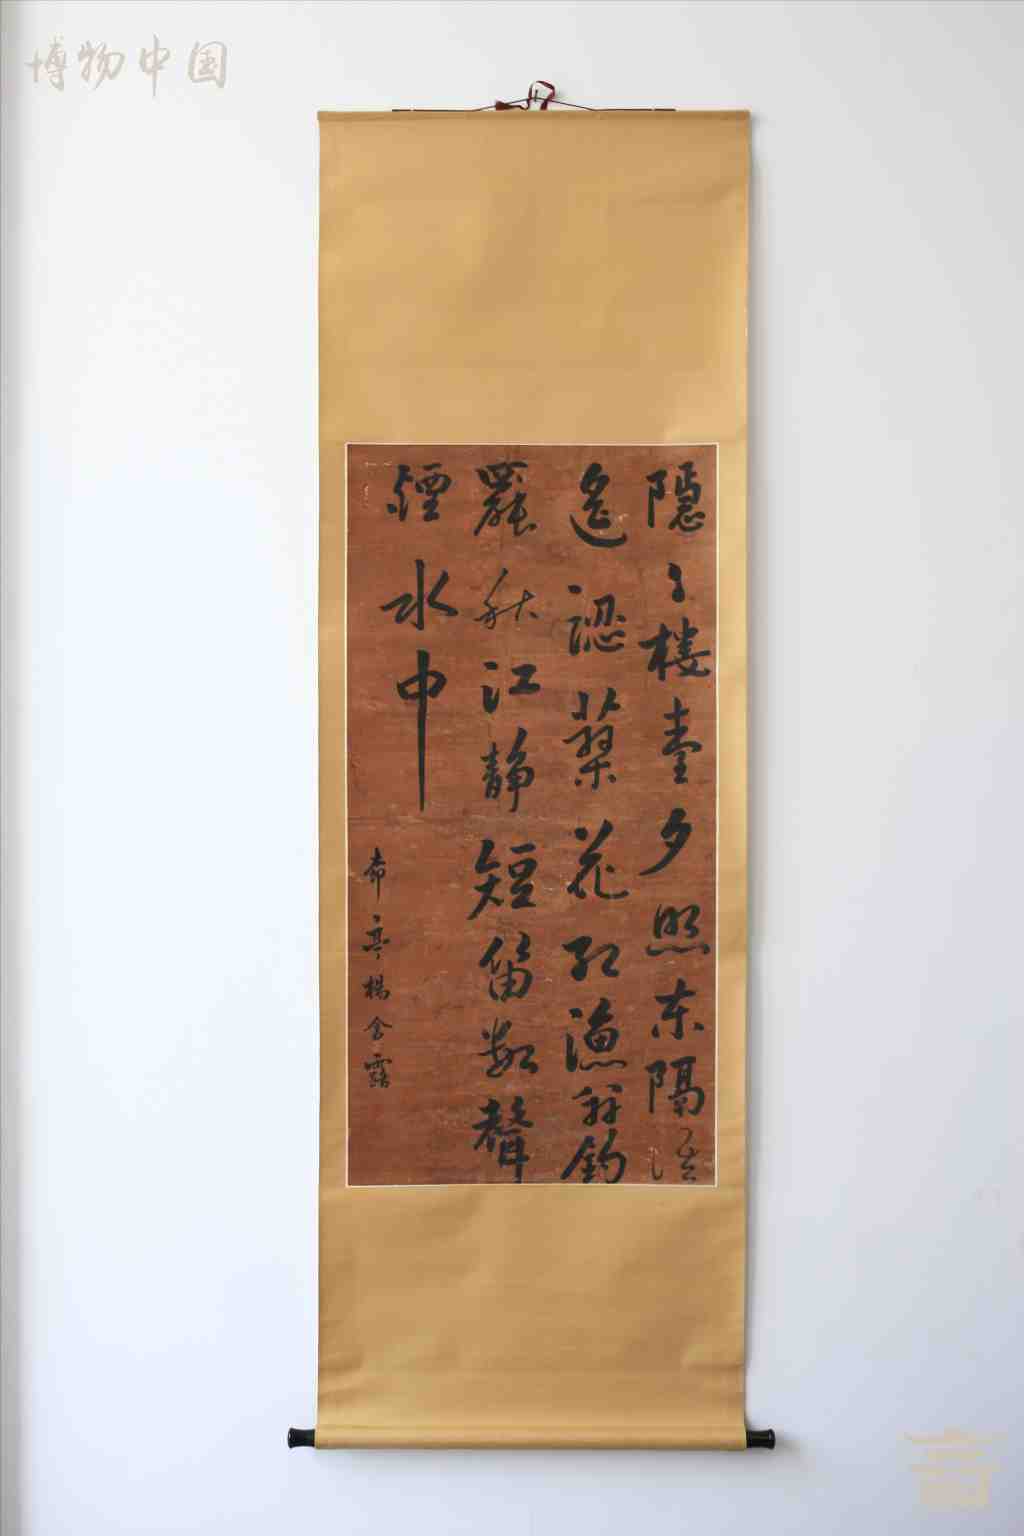 博物中国
隱〻樓臺夕照東隔溪
遙認蓼花紅漁翁釣
罷秋江靜短笛數聲
煙水中
亭楊露